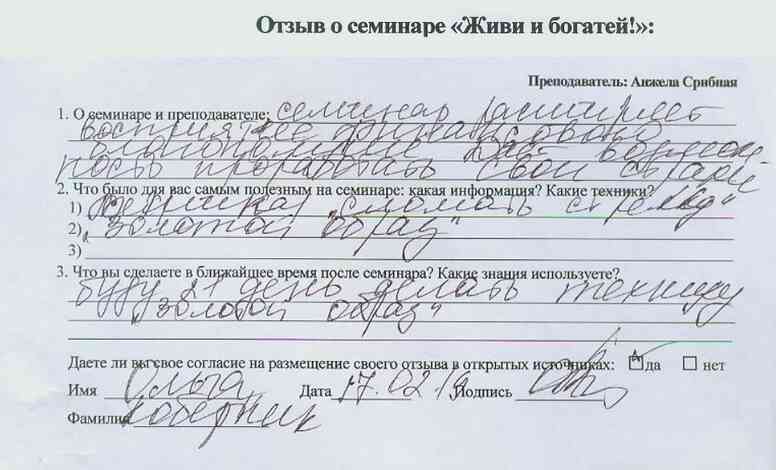 Отзыв о семинаре «Живи и богатей!»:
Преподаватель: Анжела Срибная
1. О семинаре и преподавателе: семинар расширяет
восприятие финансового
благополучие дает возмож-
ность проработать свои страхи
2. Что было для вас самым полезным на семинаре: какая информация? Какие техники?
1) техника „сломать стрелку"
2) „Золотой образ"
3)
3. Что вы сделаете в ближайшее время после семинара? Какие знания используете?
буду 21 день делать технику
„золотой образ"
Даете ли вы свое согласие на размещение своего отзыва в открытых источниках: да нет
Имя Ольга Дата 17.02.19 Подпись
Фамилия Коберник